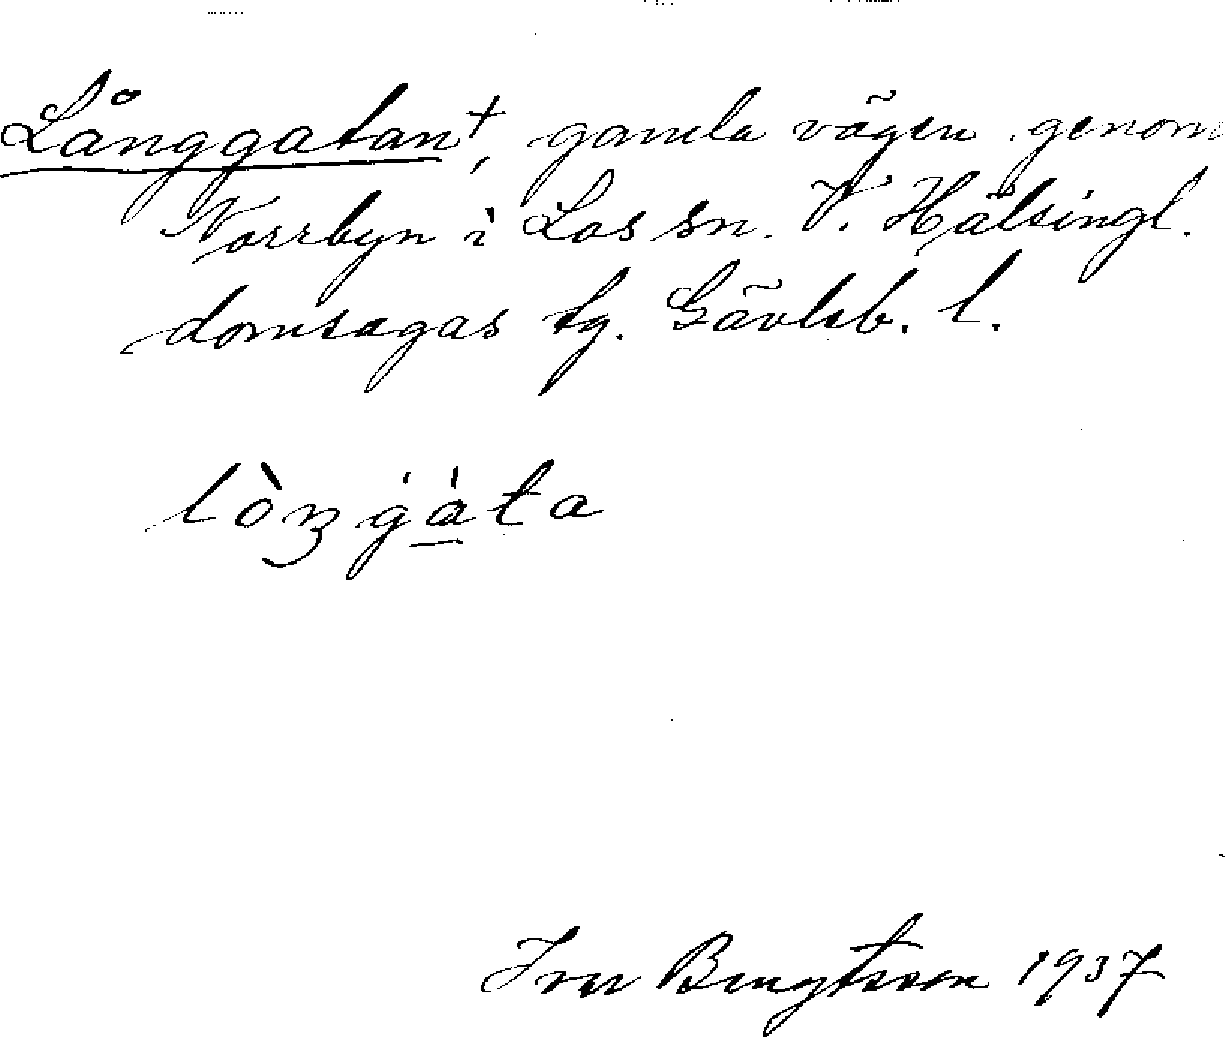 Långgatan+, gamla vägen genom
Norrbyn i Los sn. V. Hälsingl.
domsagas tg. Gävleb. l.
lòŋgàta
Ivar Bengtsson 1937